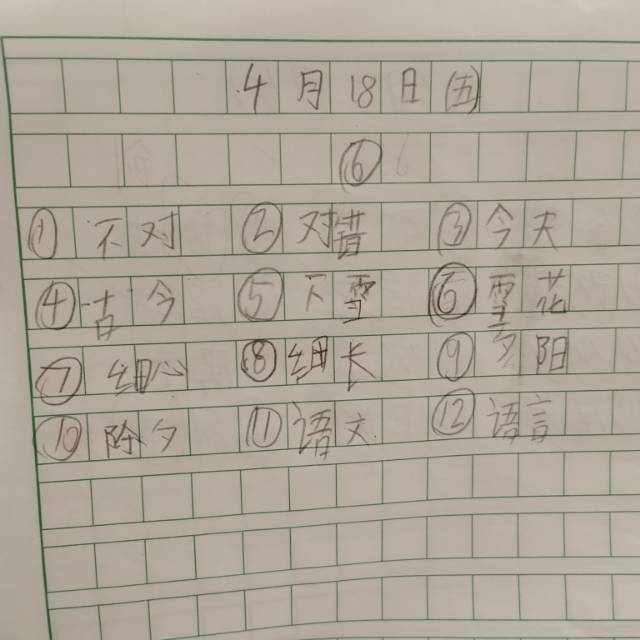 4月18日(五)
⑥
①不对 ②对错 ③今天
④古今 ⑤下雪 ⑥雪花
⑦细心 ⑧细长 ⑨夕阳
⑩除夕 ⑪语文 ⑫语言